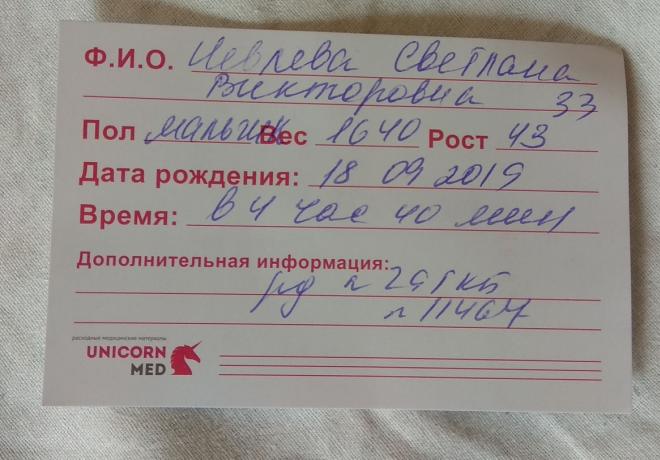 Ф.И.О. Светлана
Викторовна 33
Пол мальчик Вес 1640 Рост 43
Дата рождения: 18 09 2019
Время: в 4 час 40 мин
Дополнительная информация:
рд 24 ГКБ
расходные медицинские материалы
UNICORN
MED